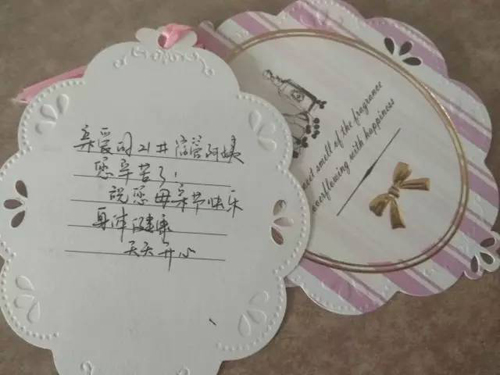 亲爱的21#宿管阿姨
您辛苦了!
祝您母亲节快乐
身体健康
天天开心
sweet smell of the fragrance
overflowing with happiness